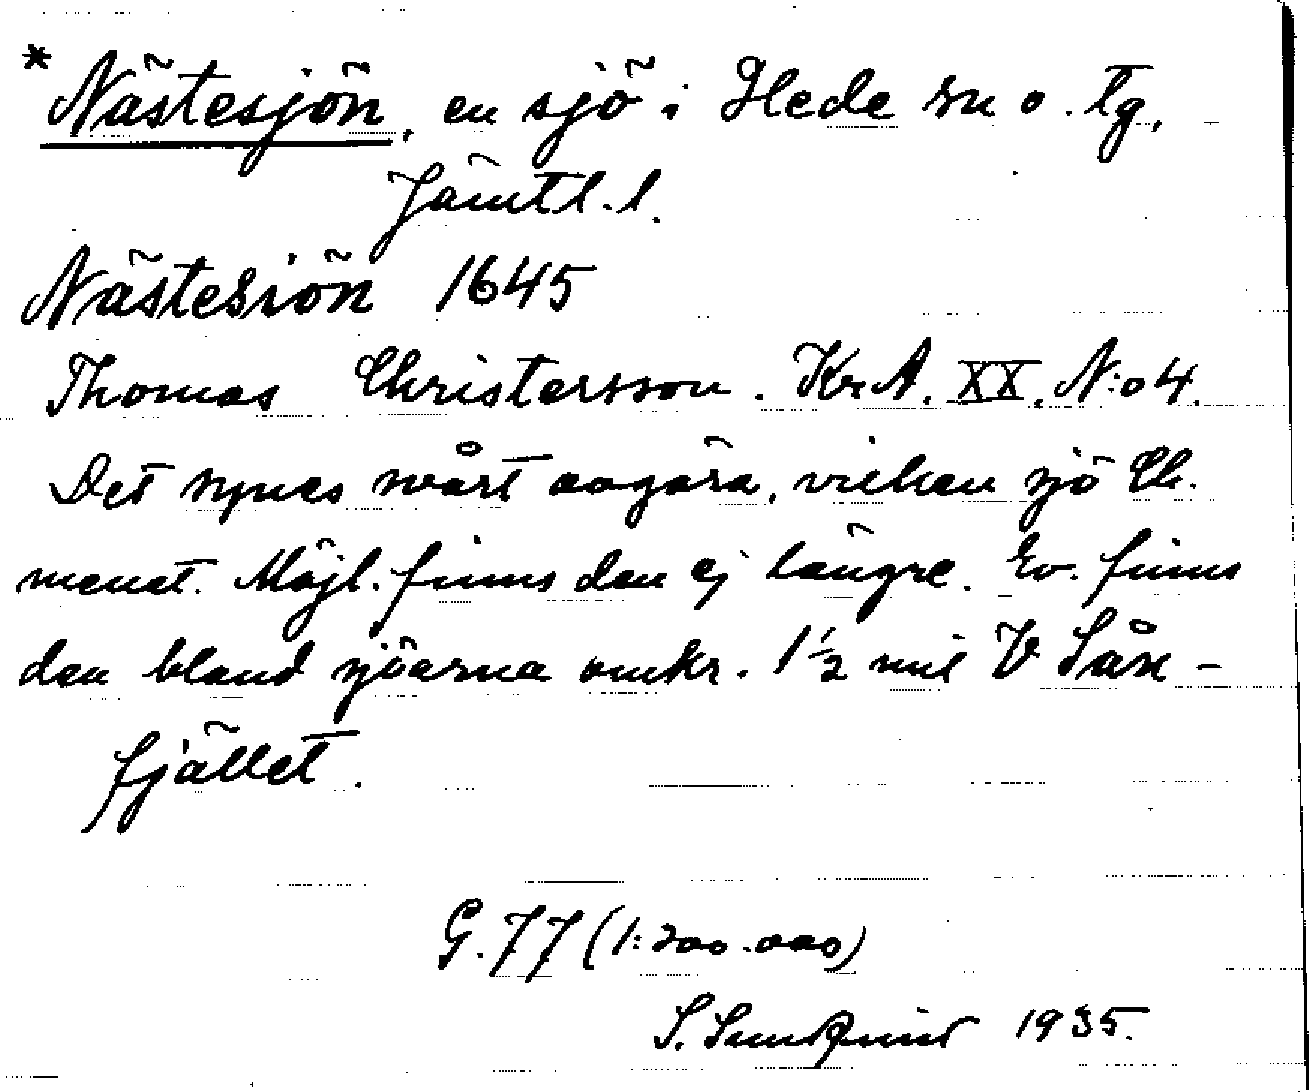 * Nästesjön, en sjö i Hede sn o. tg,
Jämtl. l.
Nästesiön 1645
Thomas Christersson. Kr.A. XX. N:o 4.
Det synes svårt avgöra, vilken sjö Ch.
menat. Möjl. finns den ej längre. Ev. finns
den bland sjöarna omkr. 1½ mil V Sån-
fjället.
G. 77 (1:200.000)
S. Sundquist 1935.